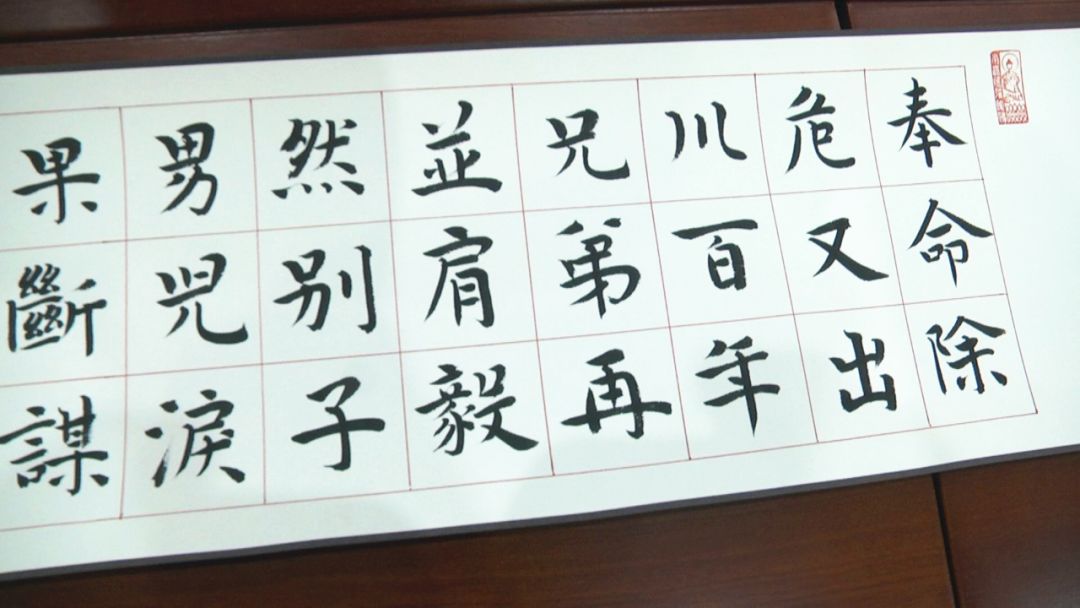 奉命除
危又出
川百年
兄弟再
並肩毅
然别子
男児淚
果斷謀